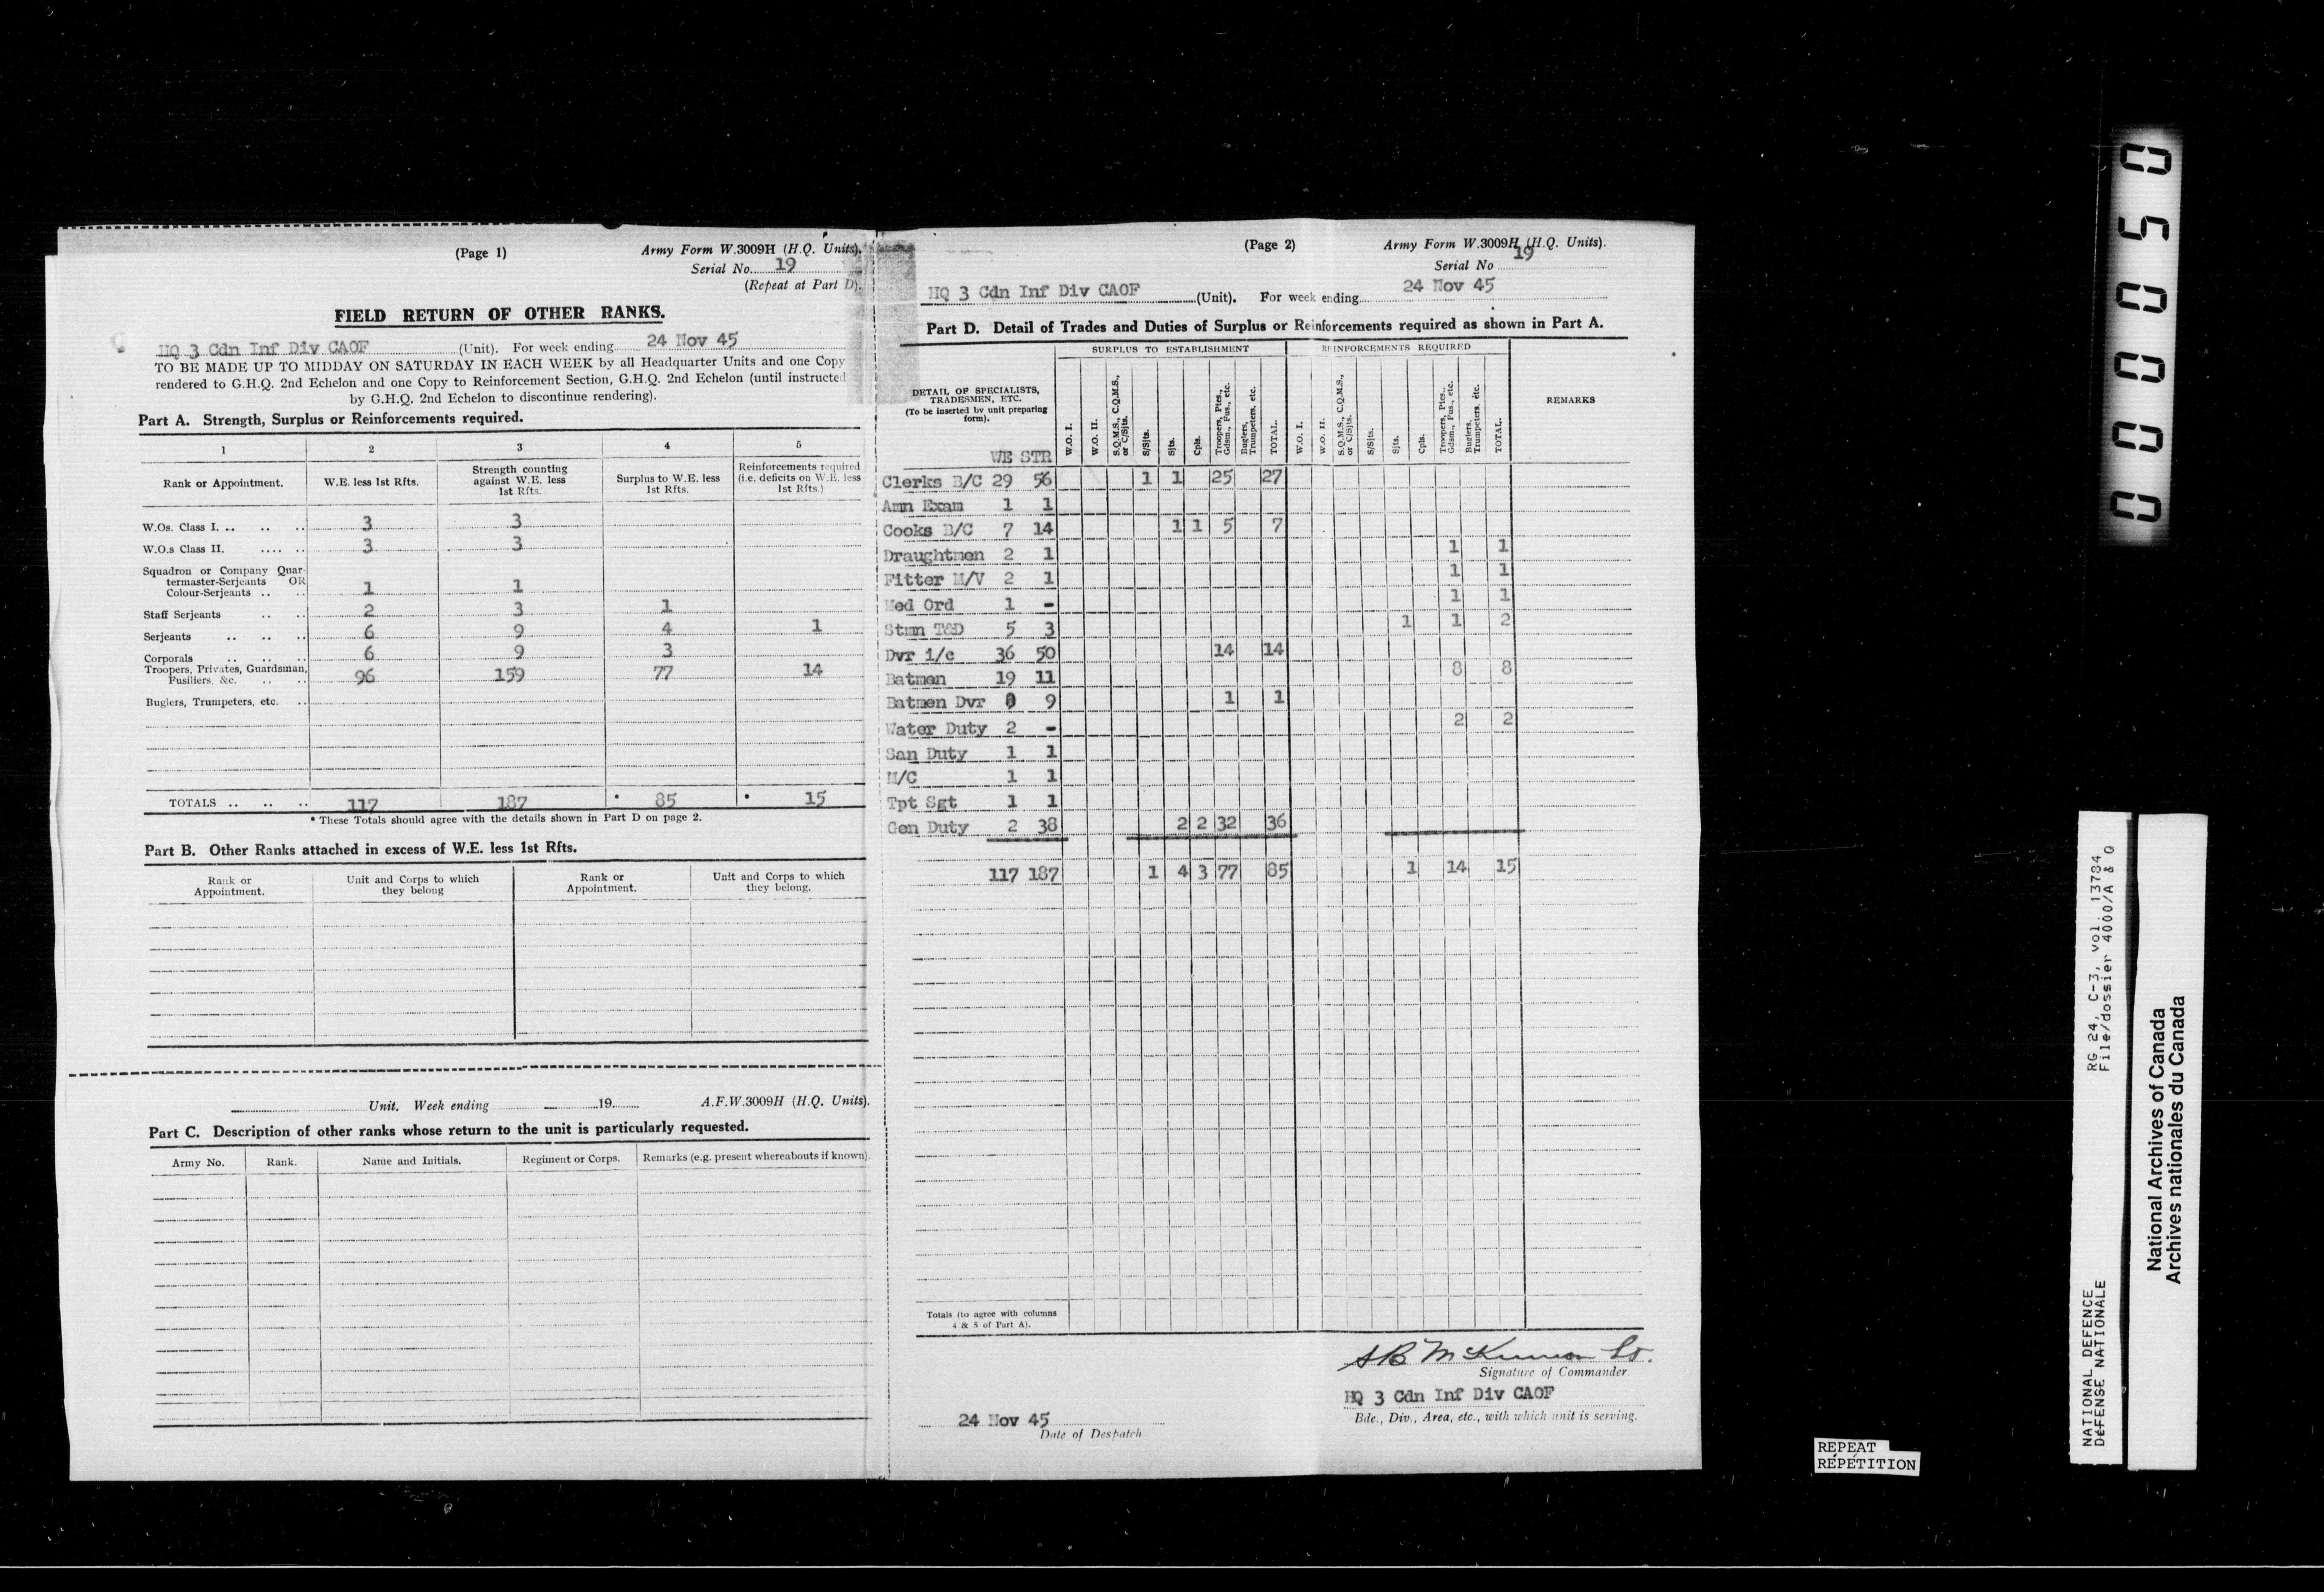 (Page 1) Army Form W.3009H (H.Q. Units).
Serial No. 19
(Repeat at Part D).
FIELD RETURN OF OTHER RANKS.
HQ 3 Cdn Inf Div CAOF (Unit). For week ending 24 Nov 45
TO BE MADE UP TO MIDDAY ON SATURDAY IN EACH WEEK by all Headquarter Units and one Copy
rendered to G.H.Q. 2nd Echelon and one Copy to Reinforcement Section, G.H.Q. 2nd Echelon (until instructed
by G.H.Q. 2nd Echelon to discontinue rendering).
Part A. Strength, Surplus or Reinforcements required.
1 2 3 4 5
Rank or Appointment. W.E. less 1st Rfts. Strength counting against W.E. less 1st Rfts. Surplus to W.E. less 1st Rfts. Reinforcements required (i.e. deficits on W.E. less 1st Rfts.)
W.Os. Class I. .. .. .. 3 3
W.O.s Class II. .... .. 3 3
Squadron or Company Quar-
termaster-Serjeants OR
Colour-Serjeants .. .. 1 1
Staff Serjeants .. .. 2 3 1
Serjeants .. .. .. 6 9 4 1
Corporals .. .. .. 6 9 3
Troopers, Privates, Guardsman,
Fusiliers, &c. .. .. 96 159 77 14
Buglers, Trumpeters, etc. ..
TOTALS .. .. .. 117 187 * 85 * 15
* These Totals should agree with the details shown in Part D on page 2.
Part B. Other Ranks attached in excess of W.E. less 1st Rfts.
Rank or Appointment. Unit and Corps to which they belong Rank or Appointment. Unit and Corps to which they belong.
Unit. Week ending 19 A.F.W.3009H (H.Q. Units).
Part C. Description of other ranks whose return to the unit is particularly requested.
Army No. Rank. Name and Initials. Regiment or Corps. Remarks (e.g. present whereabouts if known).
(Page 2) Army Form W.3009H (H.Q. Units).
Serial No 19
HQ 3 Cdn Inf Div CAOF (Unit). For week ending 24 Nov 45
Part D. Detail of Trades and Duties of Surplus or Reinforcements required as shown in Part A.
SURPLUS TO ESTABLISHMENT REINFORCEMENTS REQUIRED
DETAIL OF SPECIALISTS,
TRADESMEN, ETC.
(To be inserted by unit preparing
form).
W.O. I. W.O. II. S.Q.M.S., C.Q.M.S., or C/Sjts. S/Sjts. Sjts. Cpls. Troopers, Ptes., Gdsm., Fus., etc. Buglers, Trumpeters, etc. TOTAL. W.O. I. W.O. II. S.Q.M.S., C.Q.M.S., or C/Sjts. S/Sjts. Sjts. Cpls. Troopers, Ptes., Gdsm., Fus., etc. Buglers, Trumpeters, etc. TOTAL. REMARKS
WE STR
Clerks B/C 29 56 1 1 25 27
Amn Exam 1 1
Cooks B/C 7 14 1 1 5 7
Draughtmen 2 1 1 1
Fitter M/V 2 1 1 1
Med Ord 1 - 1 1
Stmn T&D 5 3 1 1 2
Dvr i/c 36 50 14 14
Batmen 19 11 8 8
Batmen Dvr 9 1 1
Water Duty 2 - 2 2
San Duty 1 1
M/C 1 1
Tpt Sgt 1 1
Gen Duty 2 38 2 2 32 36
117 187 1 4 3 77 85 1 14 15
Totals (to agree with columns
4 & 5 of Part A).
Signature of Commander
HQ 3 Cdn Inf Div CAOF
Bde., Div., Area, etc., with which unit is serving.
24 Nov 45
Date of Despatch
REPEAT
RÉPÉTITION
000050
RG 24, C-3, vol. 13784
File/dossier 4000/A & Q
NATIONAL DEFENCE
DÉFENSE NATIONALE
National Archives of Canada
Archives nationales du Canada